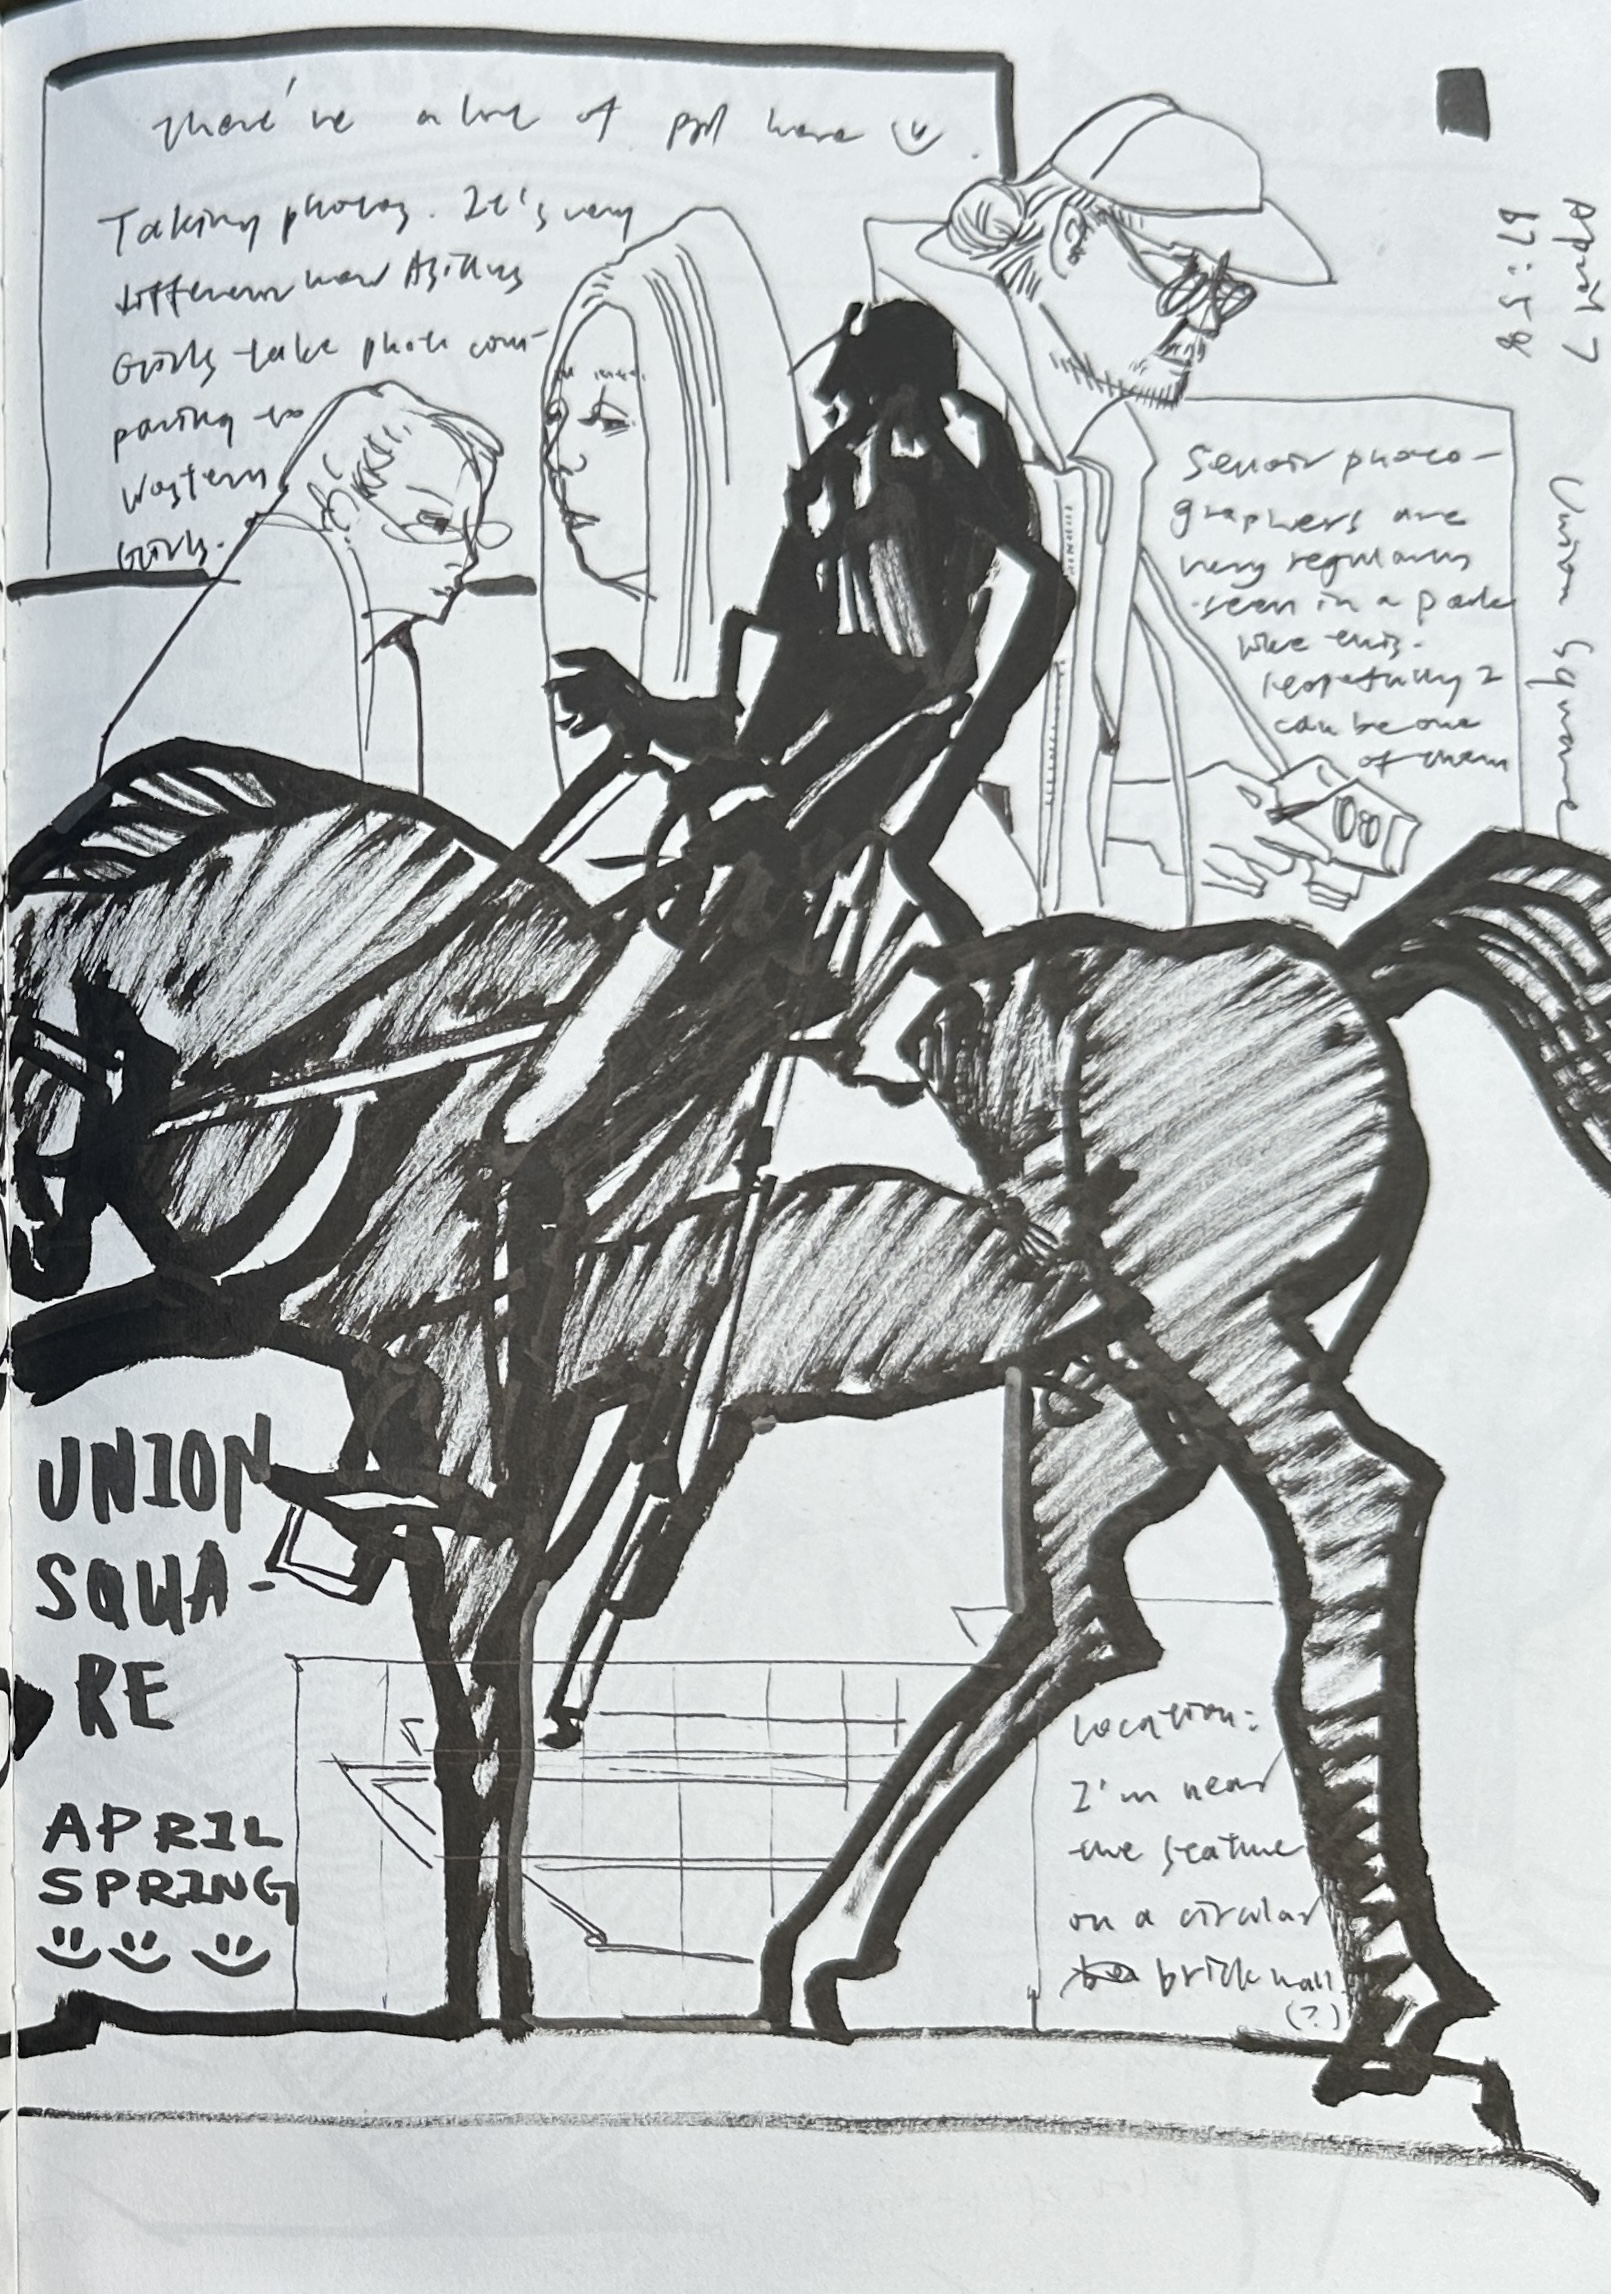 there've a lot of ppl here
Taking photos. It's very
different how Asian
Girls take photo com-
paring to
Western
Girls.
Senoir photo-
graphers are
very regularly
seen in a park
like this.
Hopefully I
can be one
of them
April 7
17:58
Union Square
UNION
SQUA-
RE
APRIL
SPRING
Location:
I'm near
the statue
on a circular
brick wall
(?)